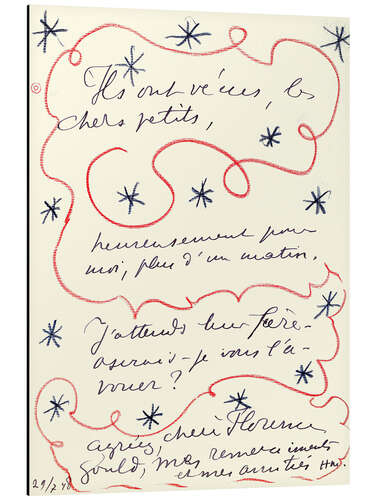 Ils ont vécus, les
chers petits,
heureusement pour
moi, plus d'un matin.
J'attends leur frère -
oserais-je vous l'a-
vouer ?
agréez, chère Florence
Gould, mes remerciements
et mes amitiés HM.
29/7 48